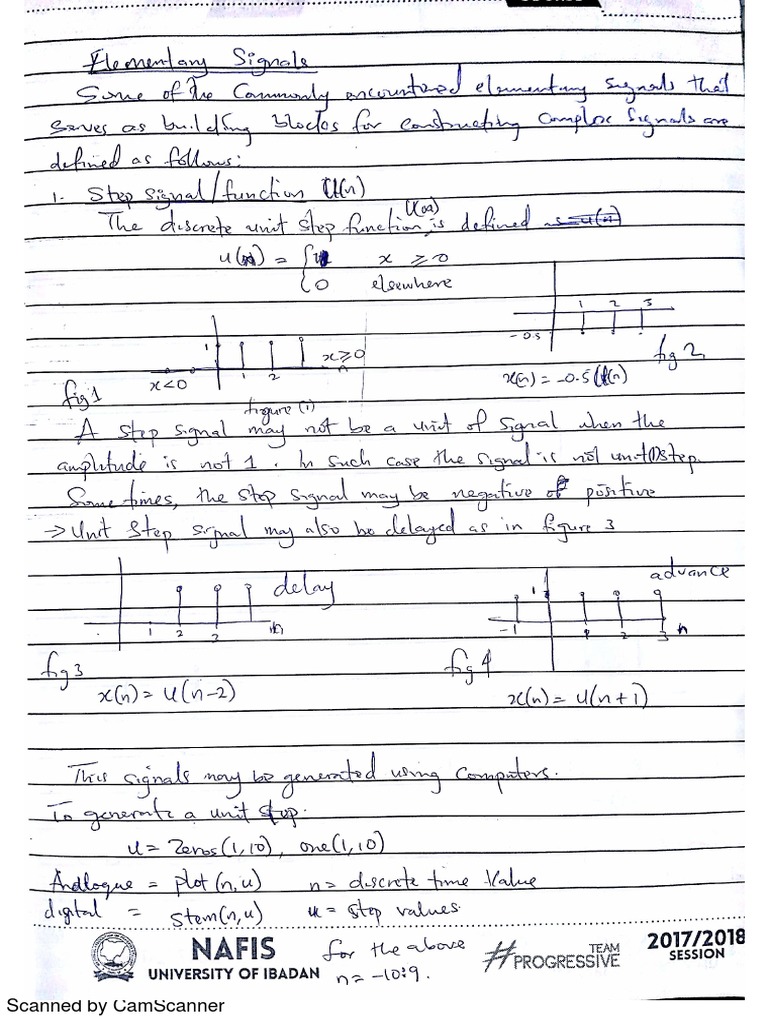 Elementary Signals
Some of the Commonly encountered elementary signals that
serves as building blocks for constructing complex signals are
defined as follows:
1. Step signal/function U(n)
U(n)
The discrete unit step function, is defined as u(n)
u(n) = { 1 x ≥ 0
0 elsewhere
1 2 3
-0.5
1 x<0 1 2 x≥0 n
fig 1
figure (1)
fig 2
x(n) = -0.5 U(n)
A step signal may not be a unit of signal when the
amplitude is not 1. In such case the signal is not unit step.
Some times, the step signal may be negative or positive
→ Unit Step signal may also be delayed as in figure 3
delay
1 2 3 n
advance
1
-1 1 2 3 n
fig 3
x(n) = u(n-2)
fig 4
x(n) = u(n+1)
This signals may be generated using Computers.
To generate a unit step.
u = Zeros(1,10), one(1,10)
Analogue = plot(n,u) n = discrete time Value
digital = stem(n,u) u = step values.
for the above
n = -10:9.
NAFIS
UNIVERSITY OF IBADAN
#TEAM
PROGRESSIVE
2017/2018
SESSION
Scanned by CamScanner